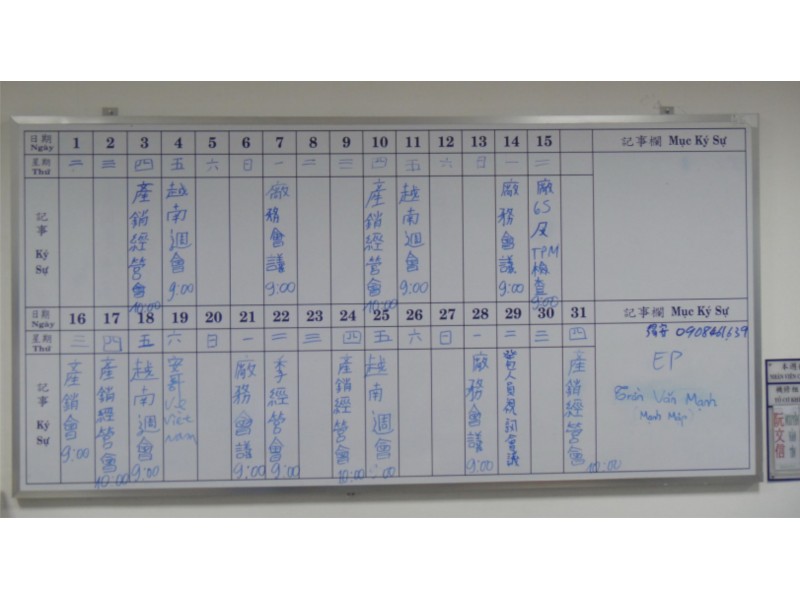 日期 Ngày 1 2 3 4 5 6 7 8 9 10 11 12 13 14 15 記事欄 Mục Ký Sự
星期 Thứ 二 三 四 五 六 日 一 二 三 四 五 六 日 一 二
記事 Ký Sự
產銷經營會 10:00
越南週會 9:00
廠務會議 9:00
產銷經營會 10:00
越南週會 9:00
廠務會議 9:00
廠6S及TPM檢查 9:00
日期 Ngày 16 17 18 19 20 21 22 23 24 25 26 27 28 29 30 31 記事欄 Mục Ký Sự
星期 Thứ 三 四 五 六 日 一 二 三 四 五 六 日 一 二 三 四
記事 Ký Sự
產銷會 9:00
產銷經營會 10:00
越南週會 9:00
安哥 Về Việt nam
廠務會議 9:00
季經營會 9:00
產銷經營會 10:00
越南週會
廠務會議 9:00
人員視訊會議
產銷經營會 10:00
0908461639
EP
Trần Văn Mạnh
Mạnh Mập
阮文信